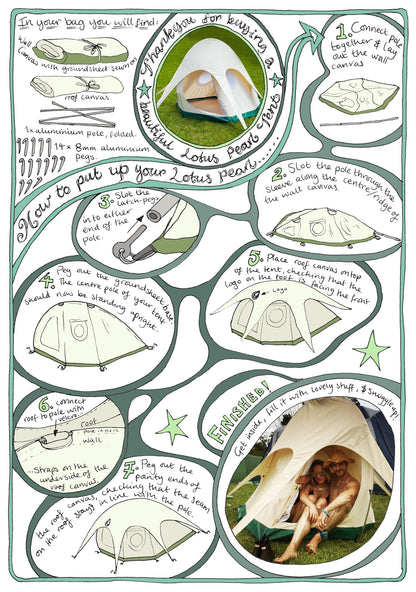 In your bag you will find:
1x wall
canvas with groundsheet sewn on
roof canvas
1x aluminium pole, folded.
14 x 8mm aluminium
pegs.
Thankyou for buying a
beautiful Lotus Pearl Tent
How to put up your Lotus Pearl......
1. Connect pole
together & lay
out the wall
canvas
2. Slot the pole through the
sleeve along the centre/ridge of
the wall canvas.
3. Slot the
pitch-pegs
in to either
end of the
pole.
4. Peg out the groundsheet base.
The centre pole of your tent
should now be standing upright.
5. Place roof canvas on top
of the tent, checking that the
logo on the roof is facing the front
Logo
6. connect
roof to pole with
velcro
roof
pole in sleeve
wall
.Straps on the
underside of the
roof canvas.
7. Peg out the
pointy ends of
the roof canvas, checking that the seam
on the roof stays in line with the pole.
FINISHED!
Get inside, fill it with lovely stuff, & snuggle up!